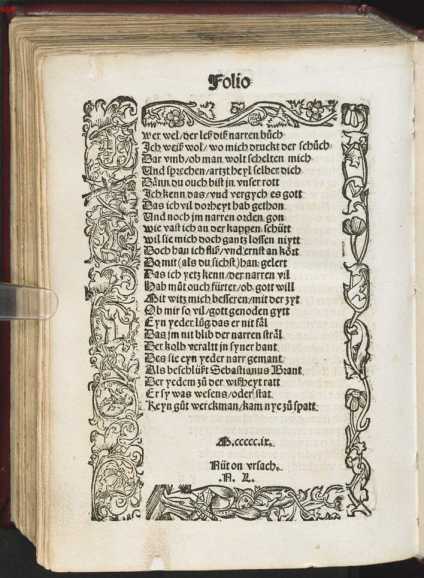 Folio
wer wel/der leß diß narren bůch
Jch weiß wol/wo mich druckt der schůch
Dar vmb/ob man wolt schelten mich
Vnd sprechen/artzt heyl selber dich
Dann du ouch bist in vnser rott
Jch kenn das/vnd vergych es gott
Das ich vil dorheyt hab gethon
Vnd noch jm narren orden gon
wie vast ich an der kappen schütt
wil sie mich doch gantz lossen nütt
Doch han ich fliß/vnd ernst an kört
Do mit (als du sichst) han gelert
Das ich yetz kenn/der narren vil
Hab můt ouch fürter/ob gott will
Mit witz mich besseren/mit der zyt
Ob mir so vil/gott genoden gytt
Eyn yeder lůg das er nit fäl
Das jm nit blib der narren sträl
Der kolb veraltt in syner hant
Des sie eyn yeder narr gemant
Als beschlüßt Sebastianus Brant
Der yedem zů der wißheyt ratt
Er sy was wesens/oder stat
Keyn gůt werckman/kam nye zů spatt
M.ccccc.ix.
Nüt on vrsach.
.N. L.